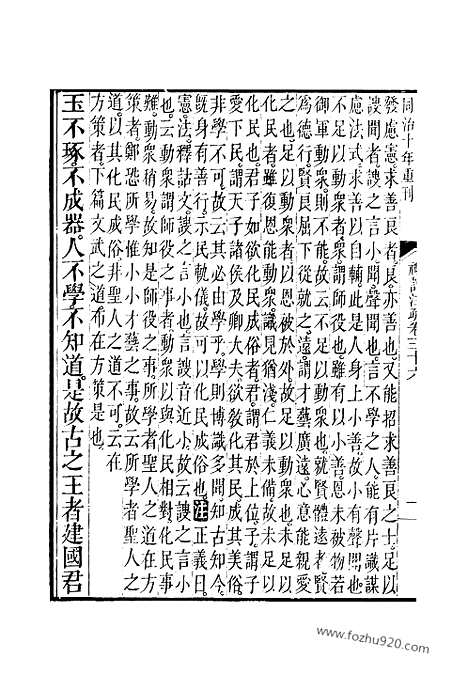 同治十年重刊
禮記注疏卷三十六
一
發慮憲求善良者良亦善也又能招求善良之士足以
謏聞者謏之言小聞聲聞也言不學之人能有片識謀
慮法式求善以自輔此是人身上小善故小有聲聞也
不足以動衆者衆謂師役也雖有以小善恩未被物若
御軍動衆則不能故云不足以動衆也就賢體遠者賢
爲德行賢良屈下從就之遠謂才藝廣遠心意能親愛
之也足以動衆者以恩被於外故足以動衆也未足以
化民者雖復恩能動衆識見猶淺仁義未備故未足以
化民也君子如欲化民成俗者君謂君於上位子謂子
愛下民謂天子諸侯及卿大夫欲敎化其民成其美俗
非學不可故云其必由學乎學則博識多聞知古知今
旣身有善行示民軌儀故可以化民成俗也注正義曰
憲法釋詁文謏之言小也言謏音近小故云謏之言小
也云動衆謂師役之事者動衆以與化民相對化民事
難動衆稍易故知是師役之事所學者聖人之道在方
策者鄭恐所學惟小小才藝之事故云所學者聖人之
道以其化民成俗非聖人之道不可云在
方策者下篇文武之道布在方策是也
玉不琢不成器人不學不知道是故古之王者建國君
www.fozhu920.com